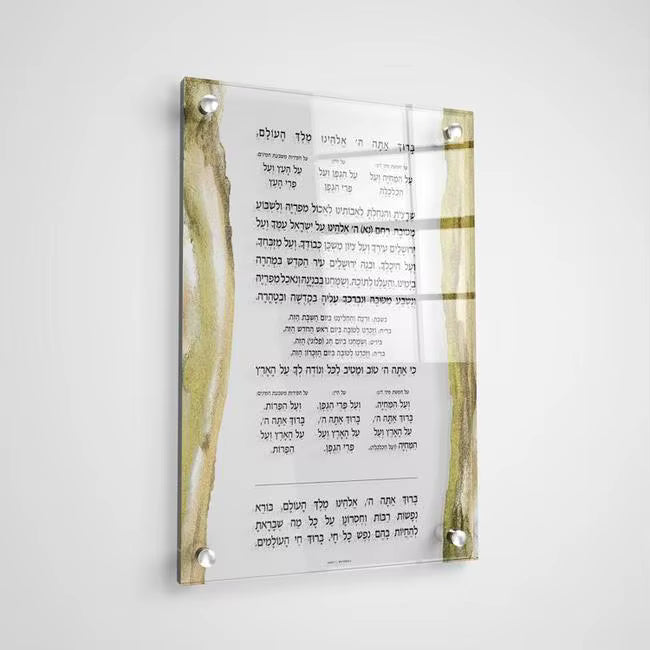 בָּרוּךְ אַתָּה ה׳ אֱלֹהֵינוּ מֶלֶךְ הָעוֹלָם,
על חמשת מיני דגן:
עַל הַמִּחְיָה וְעַל
הַכַּלְכָּלָה
על היין:
עַל הַגֶּפֶן וְעַל
פְּרִי הַגֶּפֶן
על הפירות משבעת המינים:
עַל הָעֵץ וְעַל
פְּרִי הָעֵץ
שֶׁרָצִיתָ וְהִנְחַלְתָּ לַאֲבוֹתֵינוּ לֶאֱכוֹל מִפִּרְיָהּ וְלִשְׂבּוֹעַ
מִטּוּבָהּ. רַחֵם (נָא) ה׳ אֱלֹהֵינוּ עַל יִשְׂרָאֵל עַמֶּךָ וְעַל
יְרוּשָׁלַיִם עִירֶךָ וְעַל צִיּוֹן מִשְׁכַּן כְּבוֹדֶךָ. וְעַל מִזְבַּחֶךָ.
וְעַל הֵיכָלֶךָ. וּבְנֵה יְרוּשָׁלַיִם עִיר הַקֹּדֶשׁ בִּמְהֵרָה
בְיָמֵינוּ. וְהַעֲלֵנוּ לְתוֹכָהּ. וְשַׂמְּחֵנוּ בְּבִנְיָנָהּ וְנֹאכַל מִפִּרְיָהּ
וְנִשְׂבַּע מִטּוּבָהּ וּנְבָרֶכְךָ עָלֶיהָ בִּקְדֻשָּׁה וּבְטָהֳרָה.
בשבת: וּרְצֵה וְהַחֲלִיצֵנוּ בְּיוֹם הַשַּׁבָּת הַזֶּה.
בר״ח: וְזָכְרֵנוּ לְטוֹבָה בְּיוֹם רֹאשׁ הַחֹדֶשׁ הַזֶּה.
ביו״ט: וְשַׂמְּחֵנוּ בְּיוֹם חַג (פלוני) הַזֶּה.
בר״ה: וְזָכְרֵנוּ לְטוֹבָה בְּיוֹם הַזִּכָּרוֹן הַזֶּה.
כִּי אַתָּה ה׳ טוֹב וּמֵטִיב לַכֹּל וְנוֹדֶה לְּךָ עַל הָאָרֶץ
על חמשת מיני דגן:
וְעַל הַמִּחְיָה.
בָּרוּךְ אַתָּה ה׳,
עַל הָאָרֶץ וְעַל
הַמִּחְיָה (וְעַל הַכַּלְכָּלָה).
על היין:
וְעַל פְּרִי הַגֶּפֶן.
בָּרוּךְ אַתָּה ה׳,
עַל הָאָרֶץ וְעַל
פְּרִי הַגֶּפֶן.
על הפירות משבעת המינים:
וְעַל הַפֵּרוֹת.
בָּרוּךְ אַתָּה ה׳,
עַל הָאָרֶץ וְעַל
הַפֵּרוֹת.
בָּרוּךְ אַתָּה ה׳, אֱלֹהֵינוּ מֶלֶךְ הָעוֹלָם, בּוֹרֵא
נְפָשׁוֹת רַבּוֹת וְחֶסְרוֹנָן עַל כָּל מַה שֶּׁבָּרָאתָ
לְהַחֲיוֹת בָּהֶם נֶפֶשׁ כָּל חָי. בָּרוּךְ חֵי הָעוֹלָמִים.